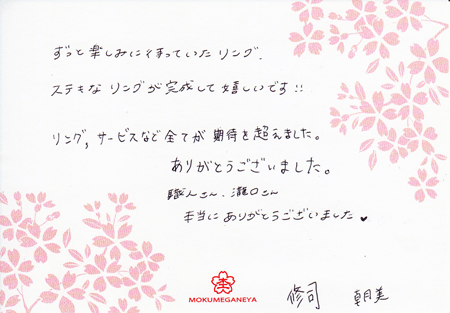 ずっと楽しみに待っていたリング、
ステキなリングが完成して嬉しいです!!
リング、サービスなど全てが期待を超えました。
ありがとうございました。
職人さん、瀧口さん
本当にありがとうございました♥
杢
MOKUMEGANEYA
修司 朝美